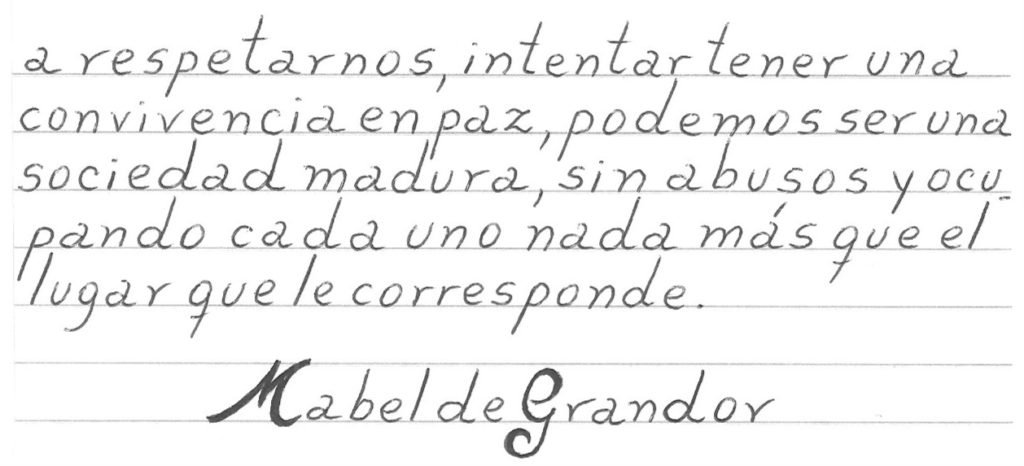 a respetarnos, intentar tener una
convivencia en paz, podemos ser una
sociedad madura, sin abusos y ocu-
pando cada uno nada más que el
lugar que le corresponde.
Mabel de Grandor